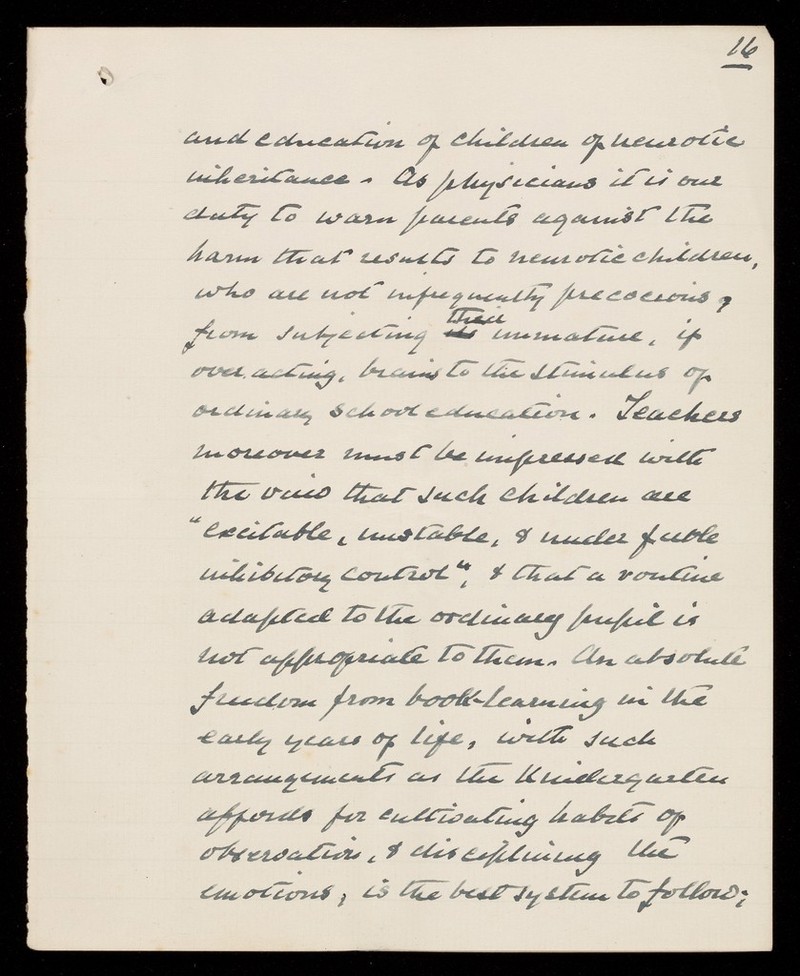 16
and education of children of neurotic
inheritance. As physicians it is our
duty to warn parents against the
harm that results to neurotic children,
who are not infrequently precocious,
from subjecting its their immature, if
over acting, brains to the stimulus of
ordinary school education. Teachers
moreover must be impressed with
the view that such children are
"excitable, unstable, & under feeble
inhibitory control", & that a routine
adapted to the ordinary pupil is
not appropriate to them. An absolute
freedom from book-learning in the
early years of life, with such
arrangements as the Kindergarten
affords for cultivating habits of
observation, & disciplining the
emotions, is the best system to follow;